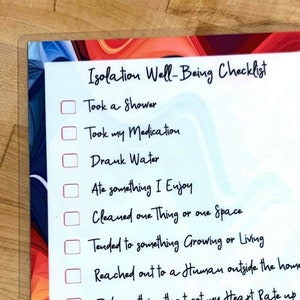 Isolation Well-Being Checklist
Took a Shower
Took my Medication
Drank Water
Ate something I Enjoy
Cleaned one Thing or one Space
Tended to something Growing or Living
Reached out to a Human outside the home
something that got my Heart Rate up